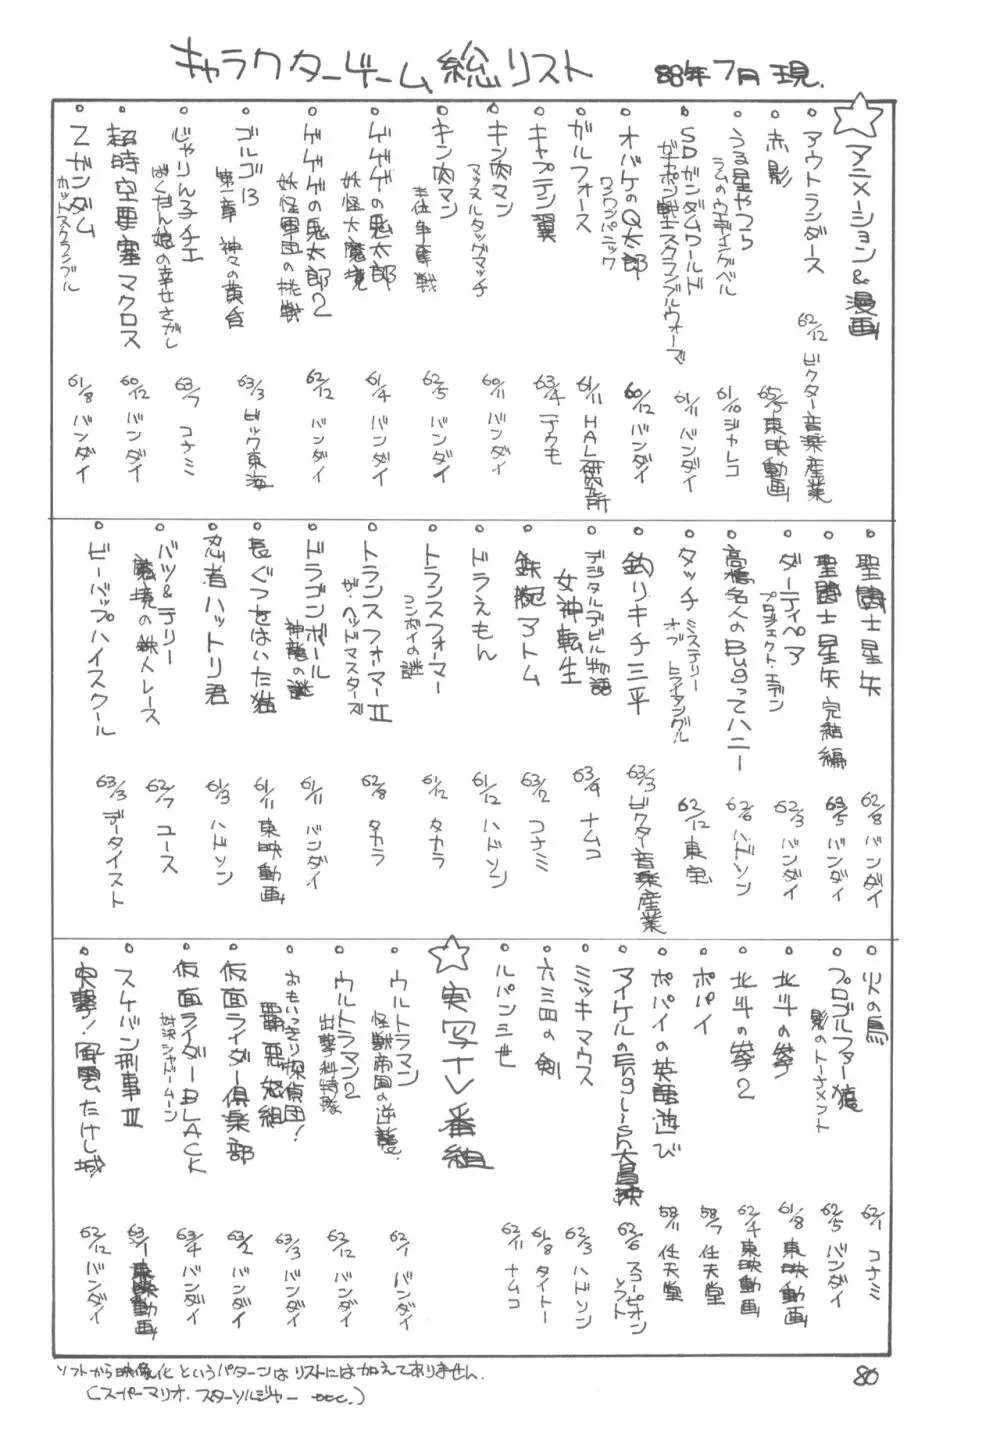 キャラクターゲーム総リスト
88年7月現.
☆アニメーション&漫画
○アウトランダース 62/12 ビクター音楽産業
○赤影 東映動画
○うる星やつら
ラムのウエディングベル
61/10 ジャレコ
○SDガンダムワールド
ガチャポン戦士スクランブルウォーズ
61/11 バンダイ
○オバケのQ太郎
ワンワンパニック
60/12 バンダイ
○ガルフォース 61/11 HAL研究所
○キャプテン翼 63/4 テクモ
○キン肉マン
マッスルタッグマッチ
60/11 バンダイ
○キン肉マン
王位争奪戦
62/5 バンダイ
○ゲゲゲの鬼太郎
妖怪大魔境
61/4 バンダイ
○ゲゲゲの鬼太郎2
妖怪軍団の挑戦
62/12 バンダイ
○ゴルゴ13
第一章 神々の黄昏
63/3 ビック東海
○じゃりん子チエ
ばくだん娘の幸せさがし
63/7 コナミ
○超時空要塞マクロス 60/12 バンダイ
○Zガンダム
ホットスクランブル
61/8 バンダイ
○聖闘士星矢 62/8 バンダイ
○聖闘士星矢 完結編 63/5 バンダイ
○ダーティペア
プロジェクト・エデン
62/3 バンダイ
○高橋名人のBugってハニー 62/6 ハドソン
○タッチ ミステリー
オブ トライアングル
62/12 東宝
○釣りキチ三平 63/3 ビクター音楽産業
○デジタルデビル物語
女神転生
63/9 ナムコ
○鉄腕アトム 63/2 コナミ
○ドラえもん 61/12 ハドソン
○トランスフォーマー
コンボイの謎
61/12 タカラ
○トランスフォーマーII
ザ・ヘッドマスターズ
62/8 タカラ
○ドラゴンボール
神龍の謎
61/11 バンダイ
○長ぐつをはいた猫 61/11 東映動画
○忍者ハットリ君 61/3 ハドソン
○バツ&テリー
魔境の鉄人レース
62/7 ユース
○ビーバップハイスクール 63/3 データイスト
○火の鳥 62/1 コナミ
○プロゴルファー猿
影のトーナメント
62/5 バンダイ
○北斗の拳 61/8 東映動画
○北斗の拳2 62/4 東映動画
○ポパイ 58/7 任天堂
○ポパイの英語遊び 58/11 任天堂
○マイケルのEnglish大冒険 62/6 スコーピオン
ソフト
○ミッキマウス 62/3 ハドソン
○六三四の剣 61/8 タイトー
○ルパン三世 62/11 ナムコ
☆実写TV番組
○ウルトラマン
怪獣帝国の逆襲.
62/1 バンダイ
○ウルトラマン2
出撃科特隊
62/12 バンダイ
○おもいっきり探偵団!
覇悪怒組
63/3 バンダイ
○仮面ライダー倶楽部 63/2 バンダイ
○仮面ライダーBLACK
対決シャドームーン
63/4 バンダイ
○スケバン刑事III 63/1 東映動画
○突撃!風雲たけし城 62/12 バンダイ
ソフトから映像化というパターンはリストには加えてありません.
(スーパーマリオ. スターソルジャー etc.)
80